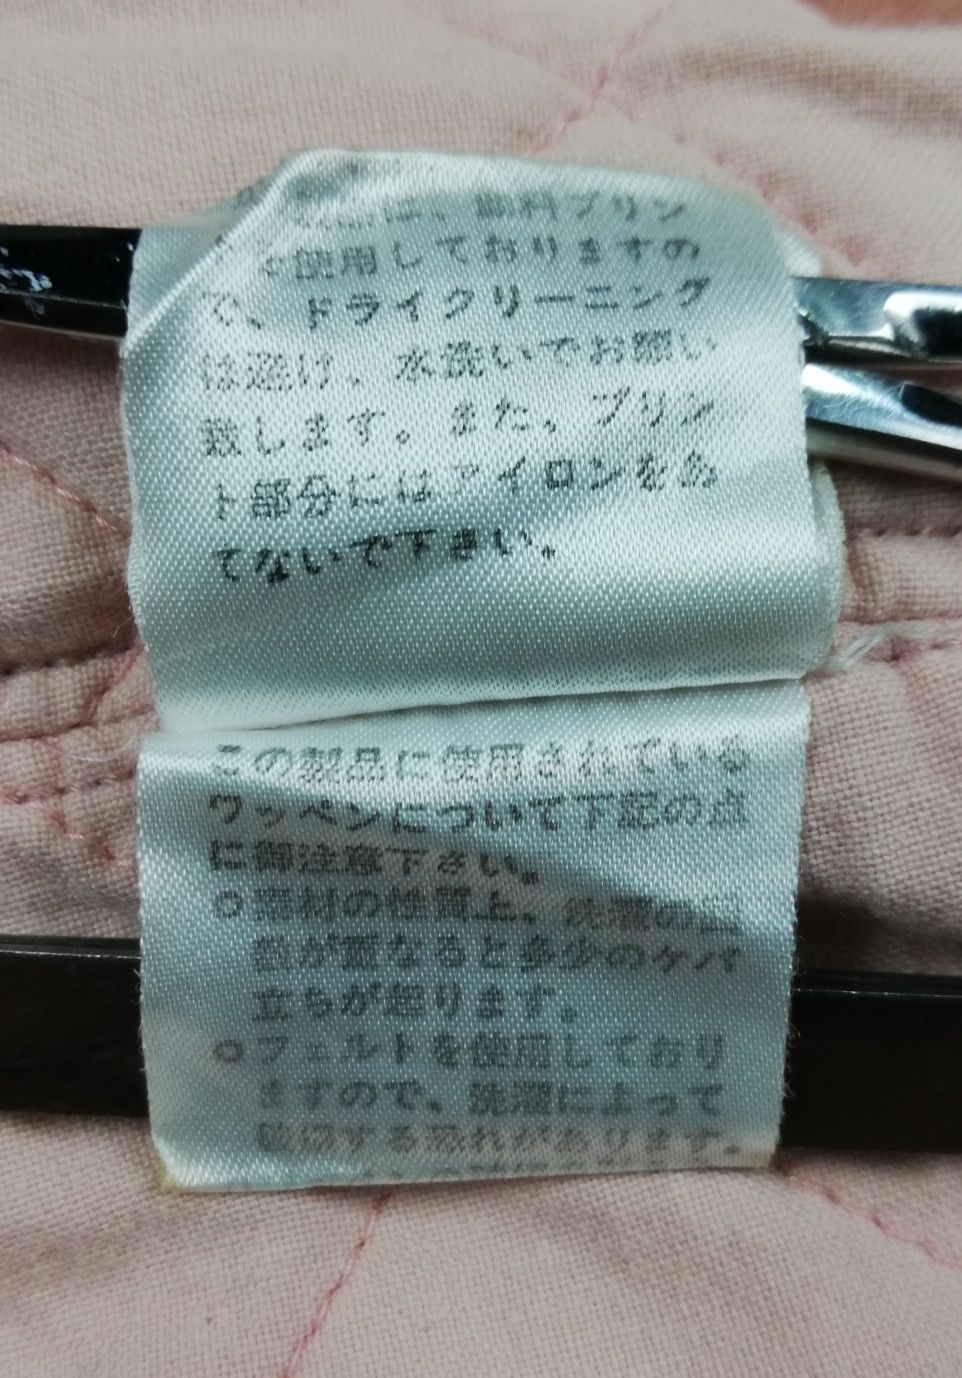 品は、顔料プリン
使用しておりますの
で、ドライクリーニング
は避け、水洗いでお願い
致します。また、プリン
ト部分にはアイロンをあ
てないで下さい。
この製品に使用されている
ワッペンについて下記の点
に御注意下さい。
○素材の性質上、洗濯の
数が重なると多少のケバ
立ちが起ります。
○フェルトを使用しており
ますので、洗濯によって
する恐れがあります。